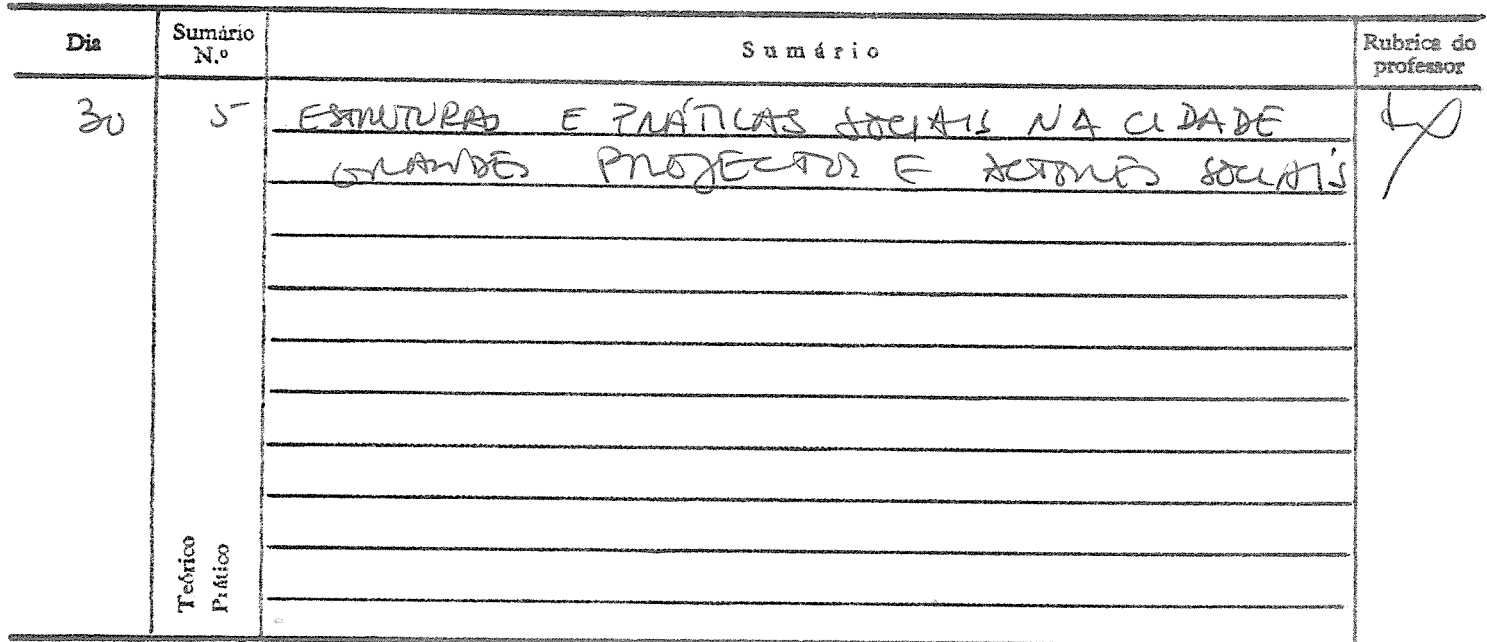 Dia Sumário N.º Sumário Rubrica do professor
30 5 ESTRUTURAS E PRÁTICAS SOCIAIS NA CIDADE
GRANDES PROJECTOS E ACTORES SOCIAIS
Teórico
Prático